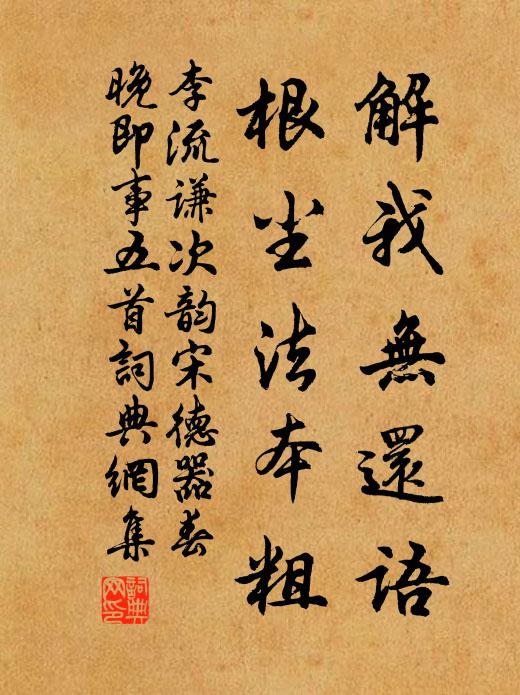 解我無還語
根尘法本粗
李流谦次韵宋德器春
晚即事五首詞典網集
詞典网印